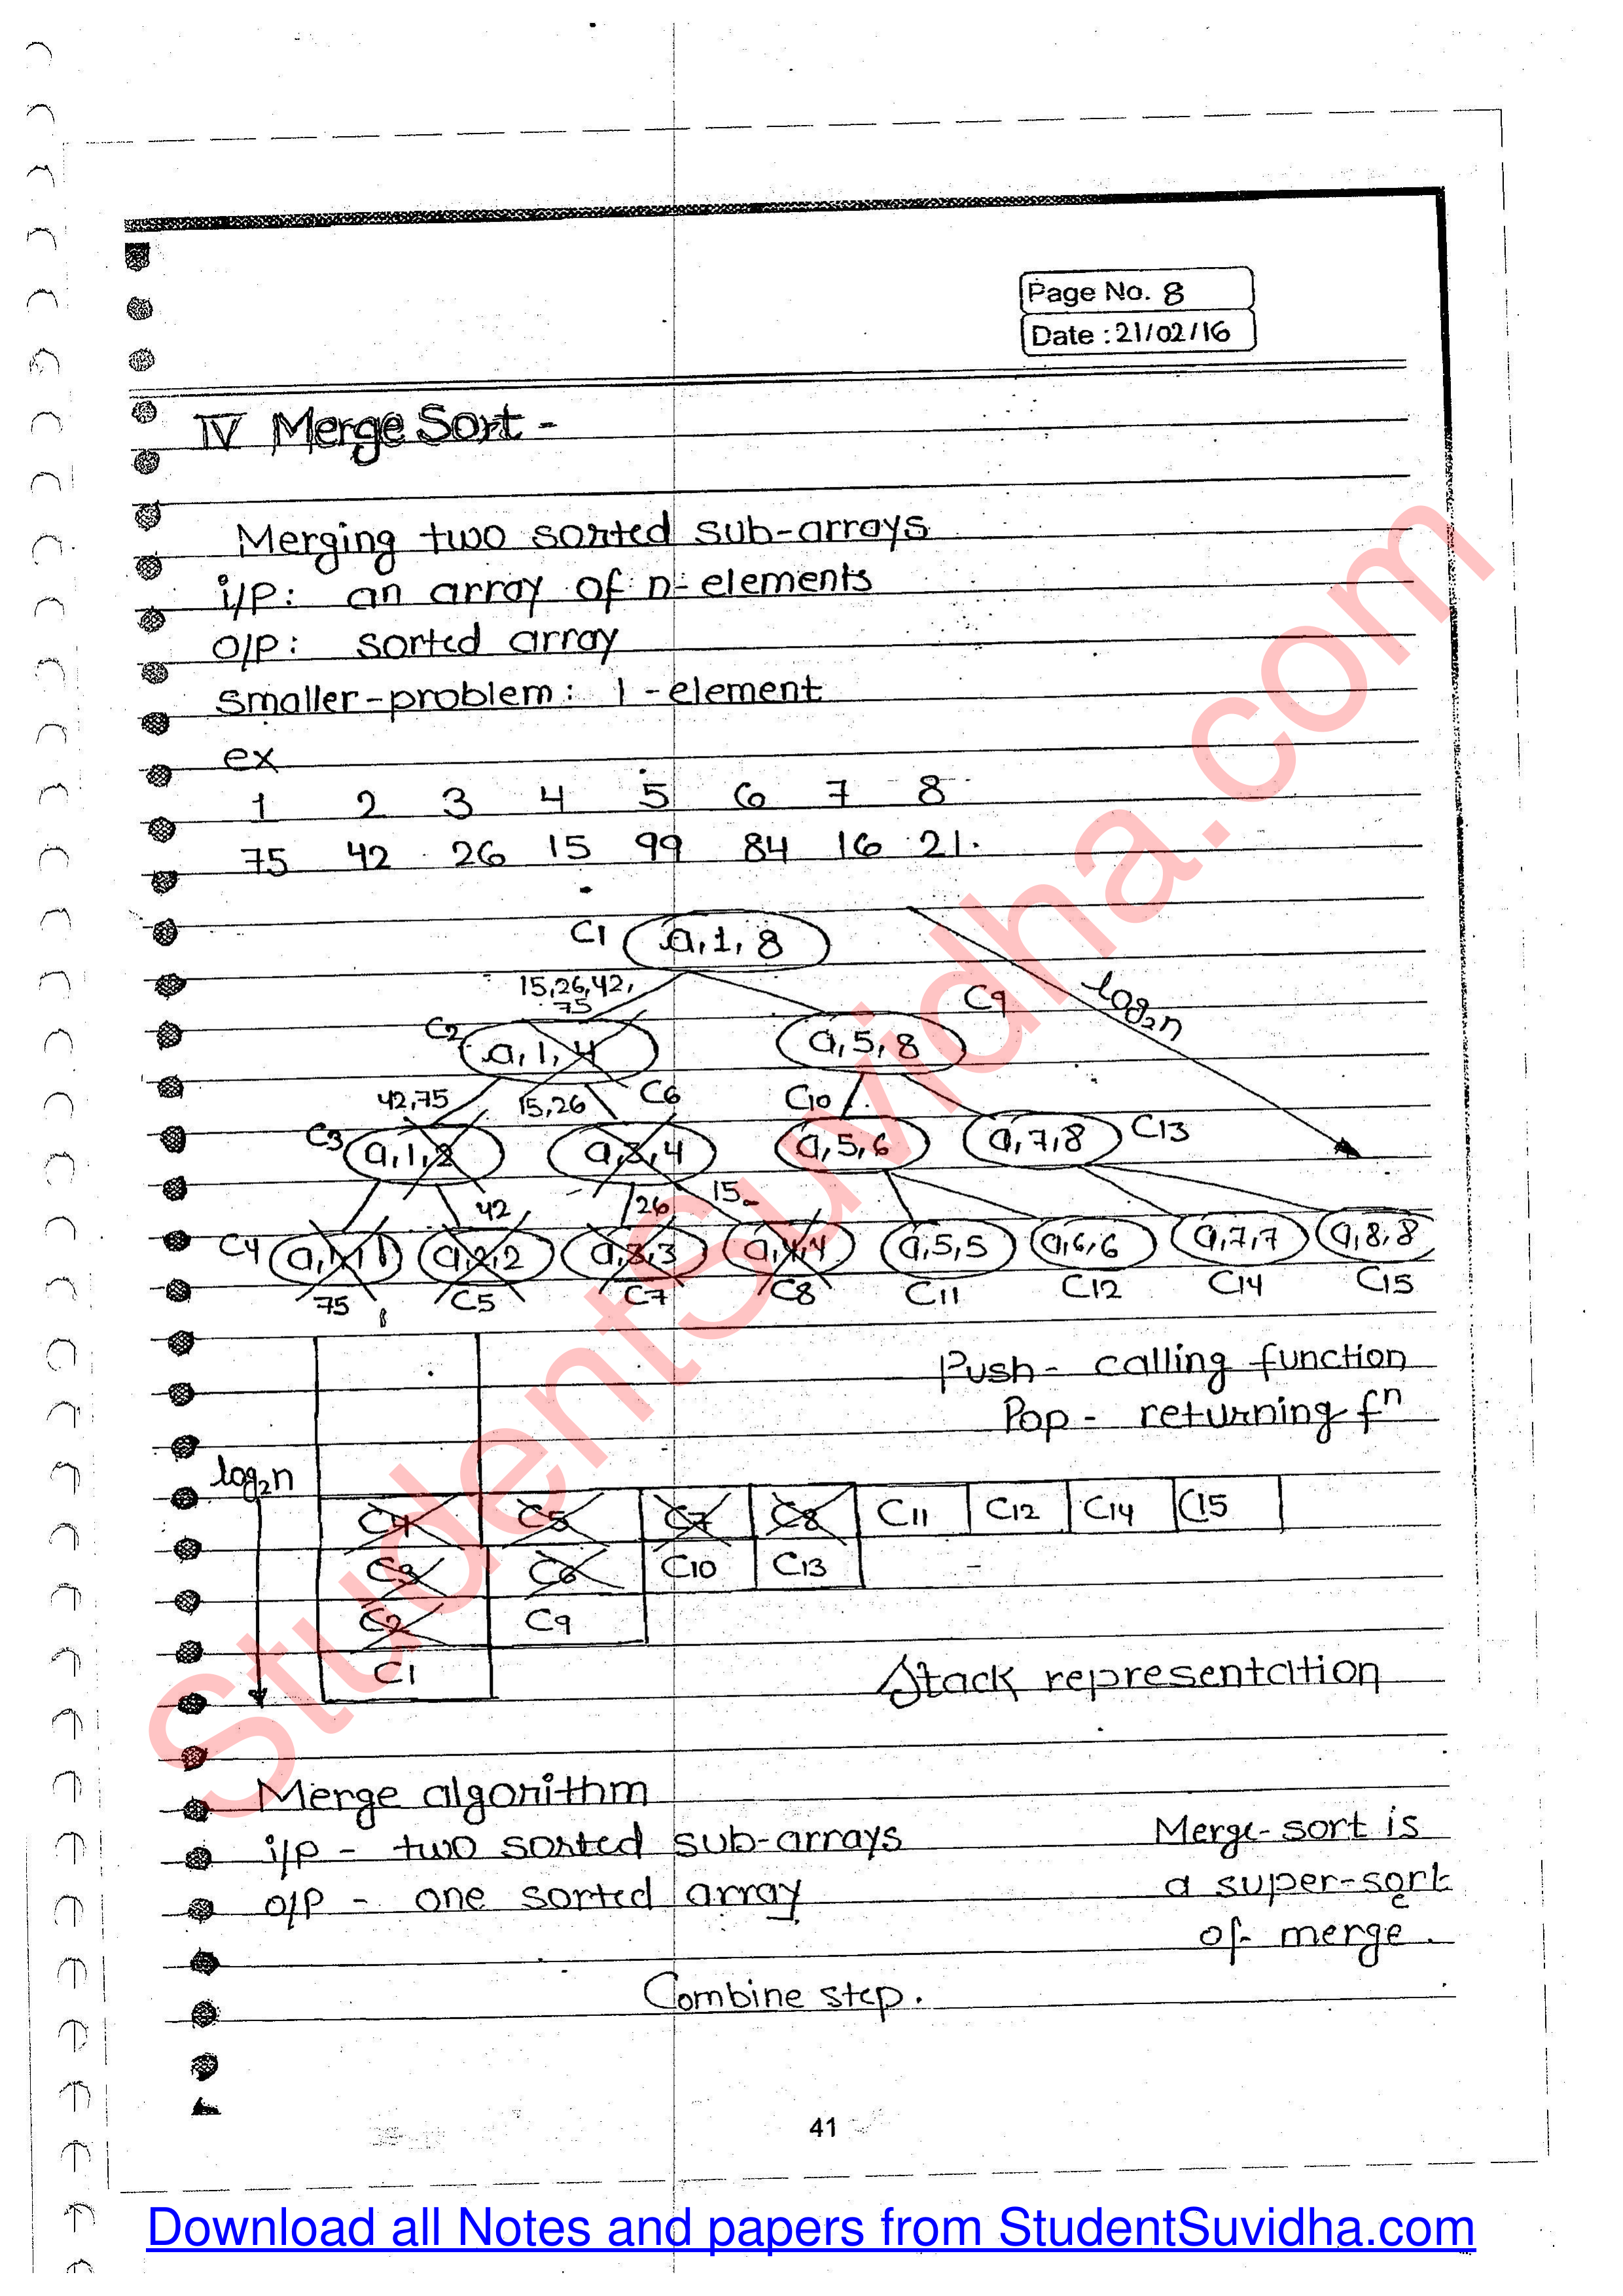 Page No. 8
Date : 21/02/16
IV Merge Sort -
Merging two sorted sub-arrays
i/p: an array of n-elements
o/p: sorted array
smaller-problem: 1-element
ex
1 2 3 4 5 6 7 8
75 42 26 15 99 84 16 21.
C1 a,1,8
15,26,42,
75
C2 a,1,4 a,5,8 C9
log₂n
42,75 15,26 C6 C10
C3 a,1,2 a,3,4 a,5,6 a,7,8 C13
42 26 15
C4 a,1,1 a,2,2 a,3,3 a,4,4 a,5,5 a,6,6 a,7,7 a,8,8
75 C5 C7 C8 C11 C12 C14 C15
Push - calling function
Pop - returning fⁿ
log₂n
C4 C5 C7 C8 C11 C12 C14 C15
C3 C6 C10 C13
C2 C9
C1
Stack representation
Merge algorithm
i/p - two sorted sub-arrays
o/p - one sorted array
Merge-sort is
a super-sort
of merge.
Combine step.
41
StudentSuvidha.com
Download all Notes and papers from StudentSuvidha.com